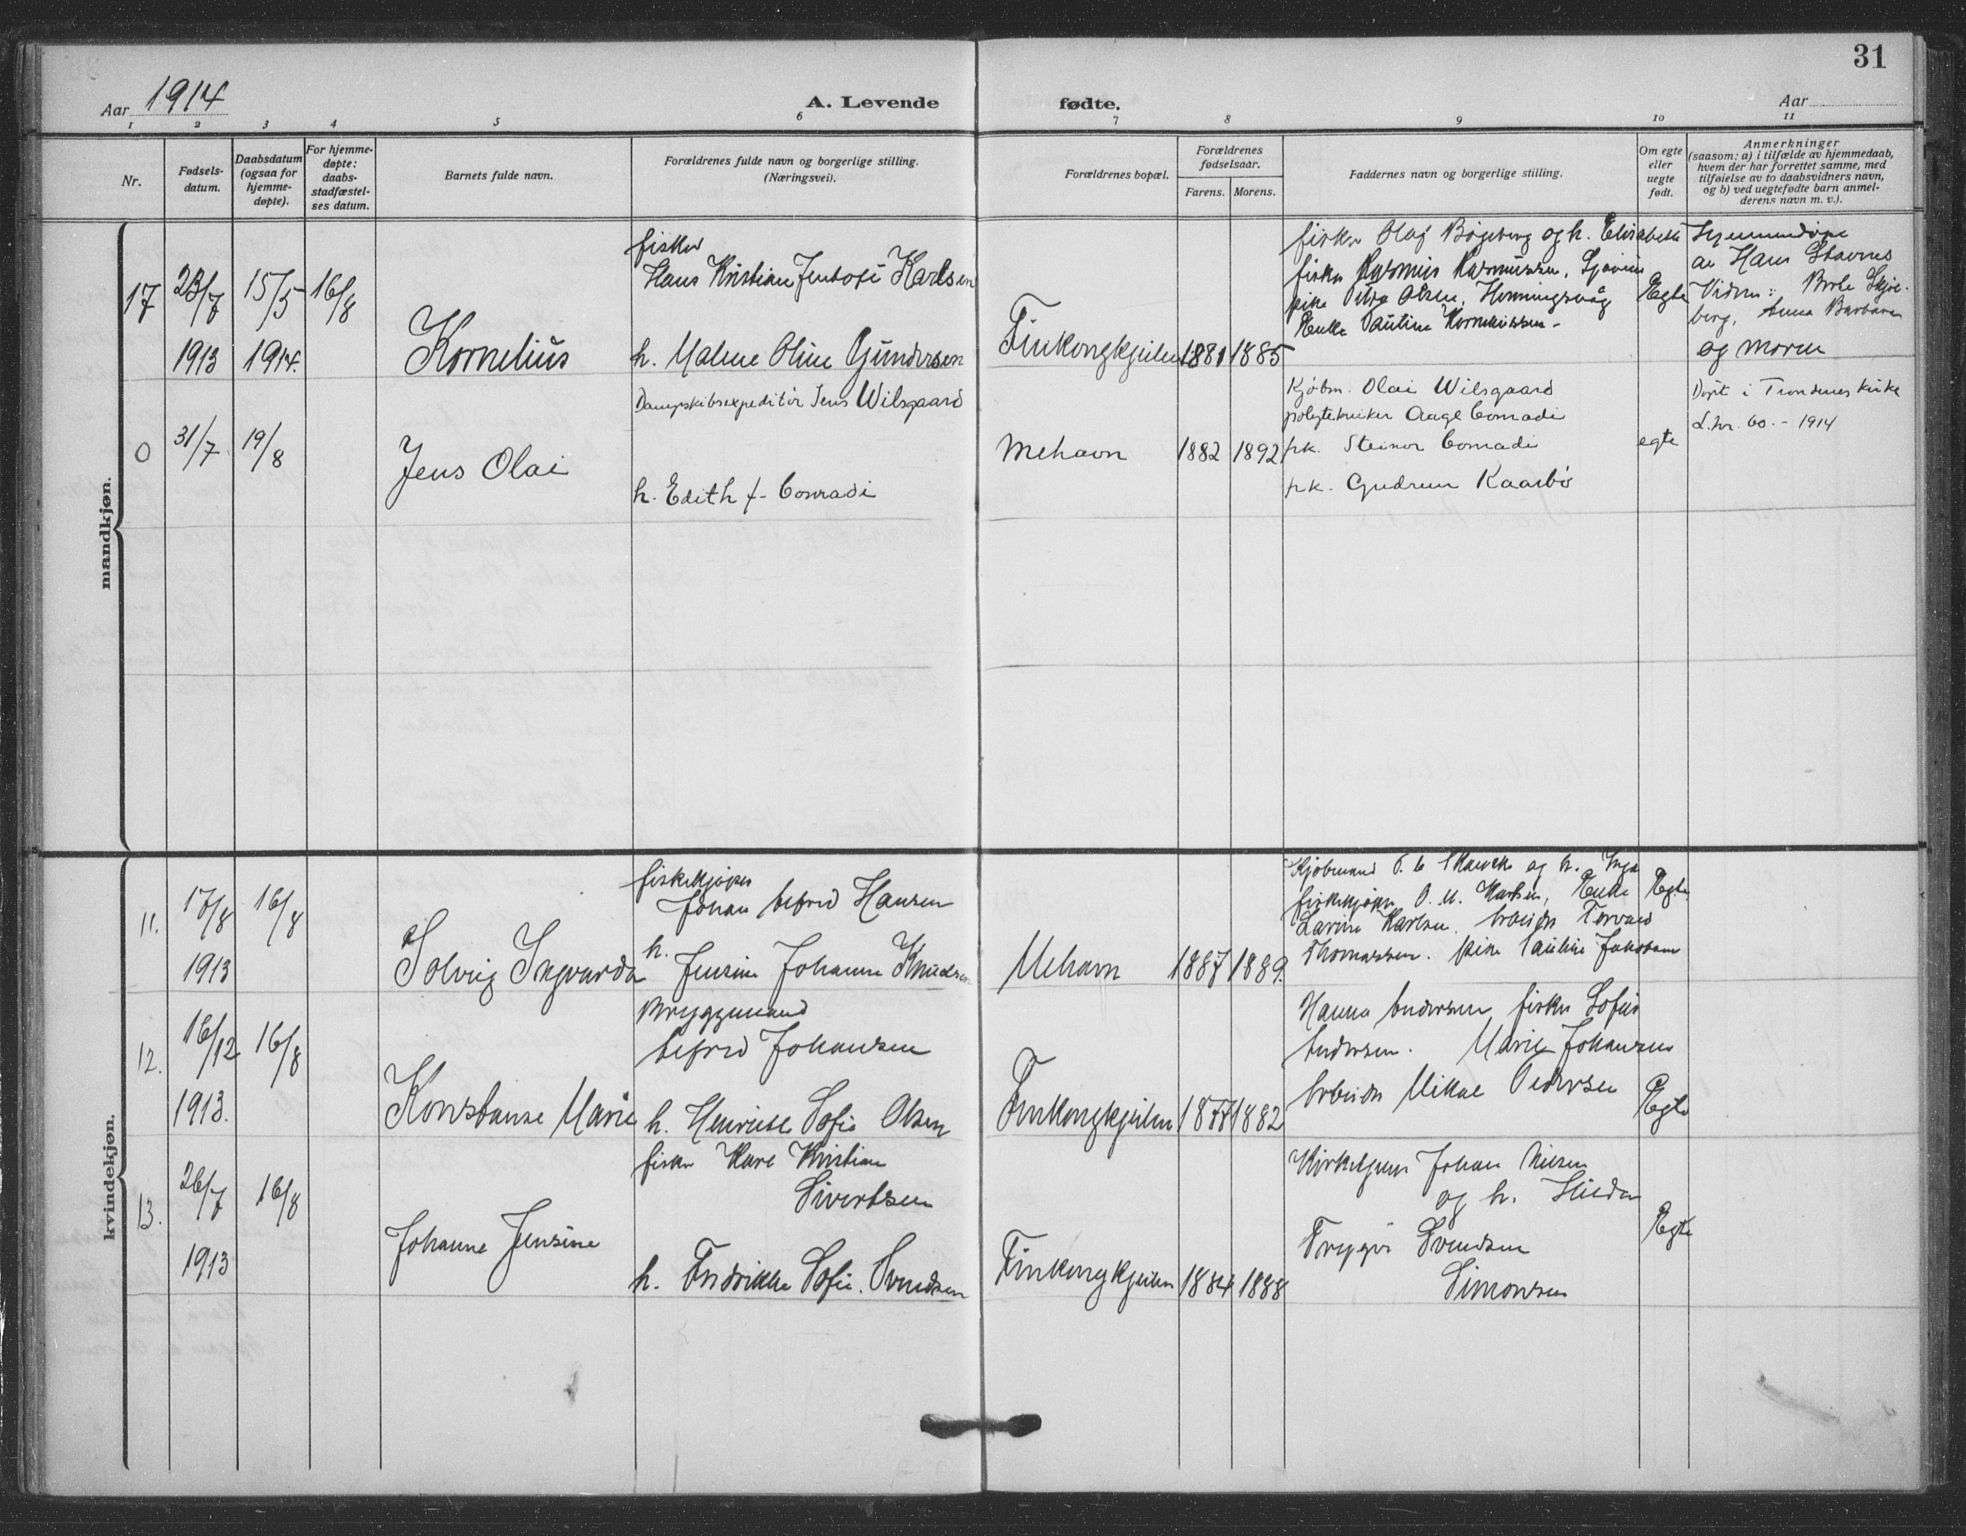 31
Aar 1914
A. Levende fødte.
Aar
1 2 3 4 5 6 7 8 9 10 11
Nr.
Fødsels-
datum.
Daabsdatum
(ogsaa for
hjemme-
døpte).
For hjemme-
døpte:
daabs-
stadfæstel-
ses datum.
Barnets fulde navn.
Forældrenes fulde navn og borgerlige stilling.
(Næringsvei).
Forældrenes bopæl.
Forældrenes
fødselsaar.
Farens. Morens.
Faddernes navn og borgerlige stilling.
Om egte
eller
uegte
født.
Anmerkninger
(saasom: a) i tilfælde av hjemmedaab,
hvem der har forrettet samme, med
tilføielse av to daabsvidners navn,
og b) ved uegtefødte barn anmel-
derens navn m. v.).
mandkjøn.
17
23/7
1913
15/5
1914.
16/8
Kornelius
fisker
Hans Kristian Jentoft Karlsen
h. Malene Oline Gundersen
Finkongkjeilen
1881 1885
fisker Olaf Bogeberg og h. Elisabeth
fisker Rasmus Rasmussen, Gjøvik
pike Petra Olsen, Honningsvåg
Enke Pauline Kornelissen
Egte
Hjemmedøpt
av Hans Stavnes
Vidner:
berg, Anna Barbara
og moren
0
31/7
19/8
Jens Olai
Dampskibsexpeditør Jens Wilsgaard
h. Edith f. Conradi
Mehavn
1882 1892
Kjøbm. Olai Wilsgaard
polytekniker Aage Conradi
frk. Steinor Conradi
frk. Gudrun Kaarbø
egte
Døpt i Trondenes kirke
L. nr. 60. - 1914
kvindekjøn.
11.
17/8
1913
16/8
Solveig Ingvarda
fiskekjøper
Johan Alfred Hansen
h. Jensine Johanne Knudsen
Mehavn
1887 1889.
Kjøbmand og h. Inga
fiskekjøper O. M. Karlsen, Enke
Lavine Karlsen, Arbeider Torvald
Thomassen. pike Pauline Jakobsen
Egte
12.
16/12
1913.
16/8
Konstanse Marie
Bryggemand
Alfred Johansen
h. Henriette Sofie Olsen
Finkongkjeilen
1877 1882
Hanna Andersen fisker Sofus
Andersen. Marie Johansen
Arbeider Mikal Pedersen
Egte
13.
26/7
1913
16/8
Johanne Jensine
fisker Karl Kristian
Sivertsen
h. Fredrikke Sofie Svendsen
Finkongkjeilen
1884 1888
Kirketjener Johan Nilsen
og h. Hilda
Trygve Svendsen
Simonsen
Egte